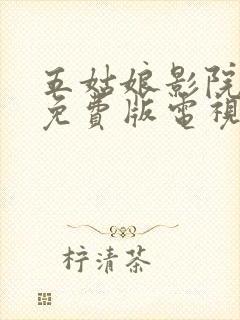 五姑娘影院
免費版電視
柠清茶